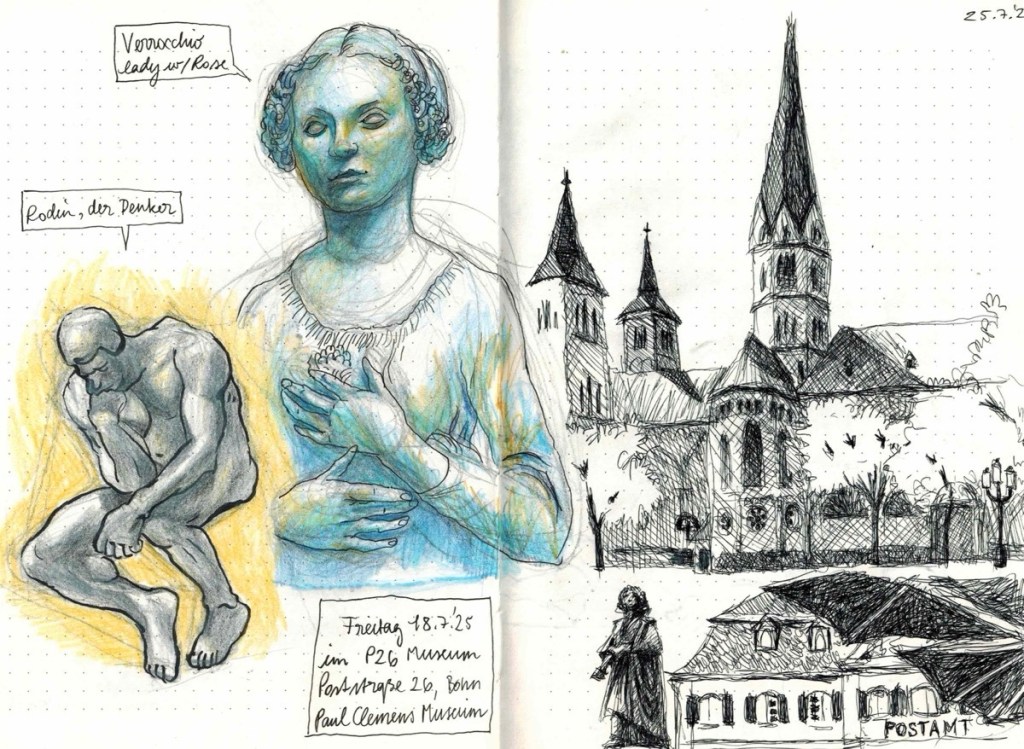 Verrocchio
lady w/ Rose
Rodin, der Denker
Freitag 18.7.'25
im P26 Museum
Poststraße 26, Bonn
Paul Clemens Museum
25.7.'2
POSTAMT